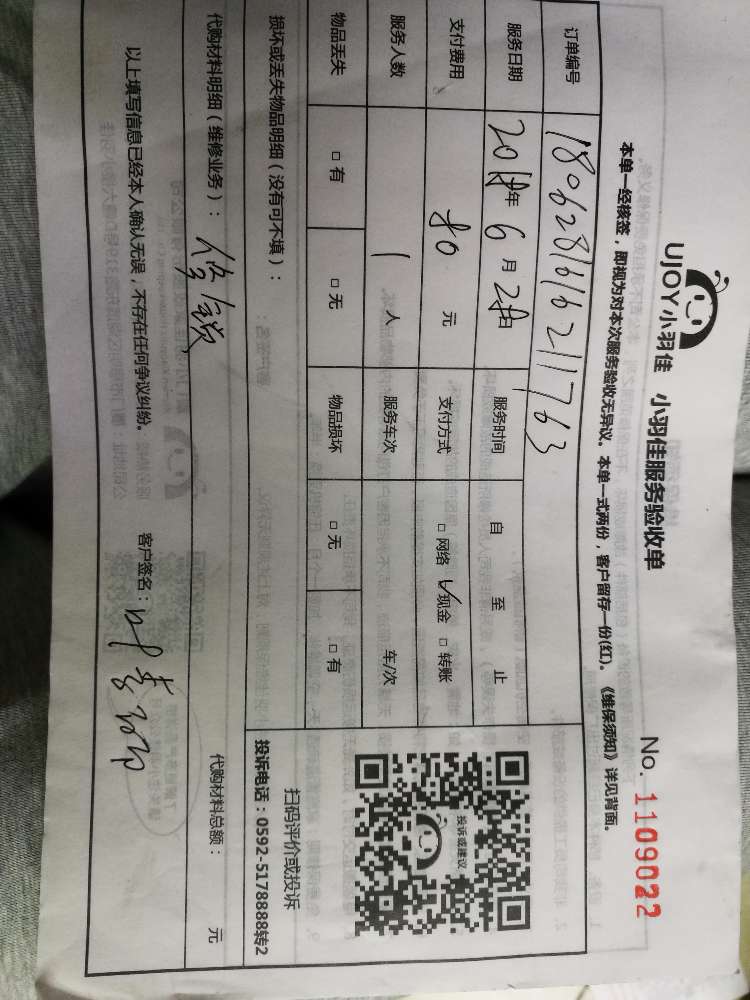 UJOY小羽佳 小羽佳服务验收单 No. 1109022
本单一经核签，即视为对本次服务验收无异议。本单一式两份，客户留存一份(红)。《维保须知》详见背面。
订单编号 1806281616211763
服务日期 2018年 6 月 28日 服务时间 自 至 止
支付费用 80 元 支付方式 □ 网络 □ 现金 □ 转账
服务人数 1 人 服务车次 车/次
物品丢失 □ 有 □ 无 物品损坏 □ 无 □ 有
投诉或建议
扫码评价或投诉
投诉电话：0592-5178888转2
损坏或丢失物品明细（没有可不填）：
代购材料明细（维修业务）： 修锁 代购材料总额： 元
以上填写信息已经本人确认无误，不存在任何争议纠纷。 客户签名：